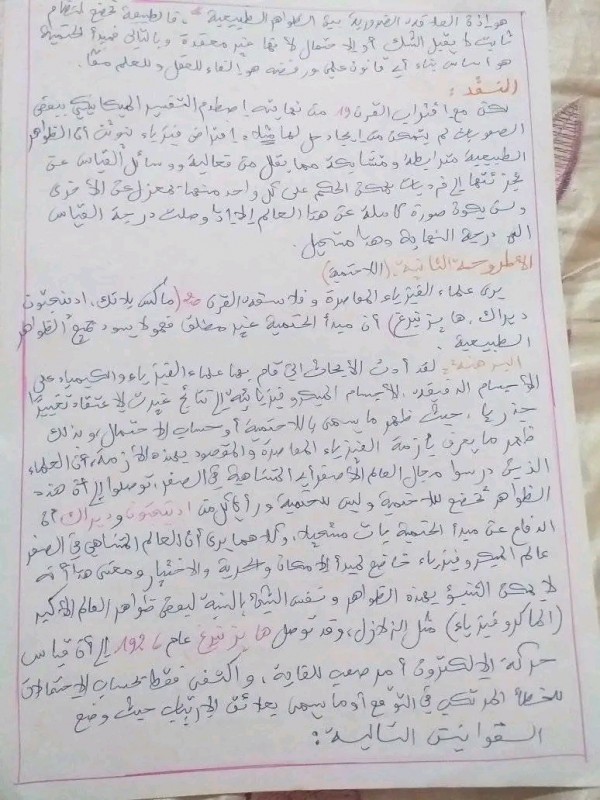 هو إذن العلاقة الضرورية بين الظواهر الطبيعية، فالطبيعة تخضع لنظام
ثابت لا يقبل الشك أو الاحتمال لأنها غير معقدة وبالتالي فمبدأ الحتمية
هو أساس بناء أي قانون علمي ورفضه هو إلغاء للعقل وللعلم معًا.
النقد:
لكن مع اقتراب القرن 19 من نهايته اصطدم التفسير الميكانيكي ببعض
الصعوبات لم يتمكن من إيجاد حل لها مثلا: افتراض فيزياء نيوتن أن الظواهر
الطبيعية مترابطة ومتشابكة مما يقلل من فعالية ووسائل القياس عن
تجزئتها إلى فرديات يمكن الحكم على كل واحد منها بمعزل عن الأخرى
ولن يكون صورة كاملة عن هذا العالم إلا إذا وصلت درجة القياس
إلى درجة النهاية وهذا مستحيل.
الأطروحة الثانية: (اللاحتمية)
يرى علماء الفيزياء المعاصرة وفلاسفة القرن 20 (ماكس بلانك، ادينجتون
ديراك، هايزنبرغ) أن مبدأ الحتمية غير مطلق فهو لا يسود جميع الظواهر
الطبيعية.
البرهنة: لقد أدت الأبحاث التي قام بها علماء الفيزياء والكيمياء على
الأجسام الدقيقة، الأجسام الميكروفيزيائية إلى نتائج غيرت الاعتقاد تغييرًا
جذريا، حيث ظهر ما يسمى باللاحتمية أو حساب الاحتمال وبذلك
ظهر ما يعرف بأزمة الفيزياء المعاصرة والمقصود بهذه الأزمة، أن العلماء
الذين درسوا مجال العالم الأصغر أي المتناهية في الصغر، توصلوا إلى أن هذه
الظواهر تخضع للاحتمية وليس للحتمية ورأى كل من ادينجتون وديراك أن
الدفاع عن مبدأ الحتمية بات مستحيلا، وكلاهما يرى أن العالم المتناهي في الصغر
عالم الميكروفيزياء خاضع لمبدأ الإمكان والحرية والاختيار ومعنى هذا أنه
لا يمكن التنبؤ بهذه الظواهر ونفس الشيء بالنسبة لبعض ظواهر العالم الأكبر
(الماكروفيزياء) مثل الزلازل، وقد توصل هايزنبرغ عام 1926 إلى أن قياس
حركة الإلكترون أمر صعب للغاية، واكتفى فقط بحساب الاحتمالات
للخطأ المرتكب في التوقع أو ما يسمى بعلائق الارتياب حيث وضع
القوانين التالية: